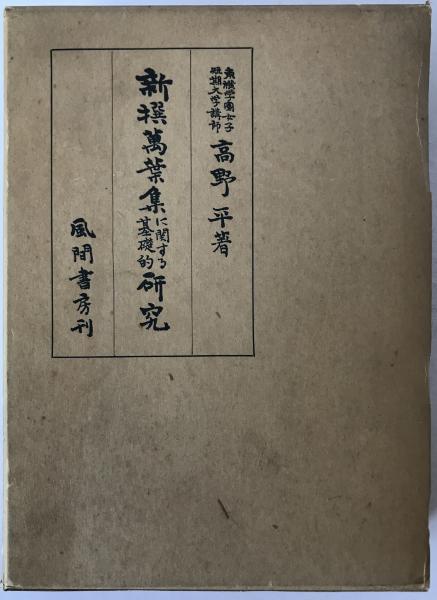 東横学園女子
短期大学講師
高野平著
新撰萬葉集に関する
基礎的研究
風間書房刊